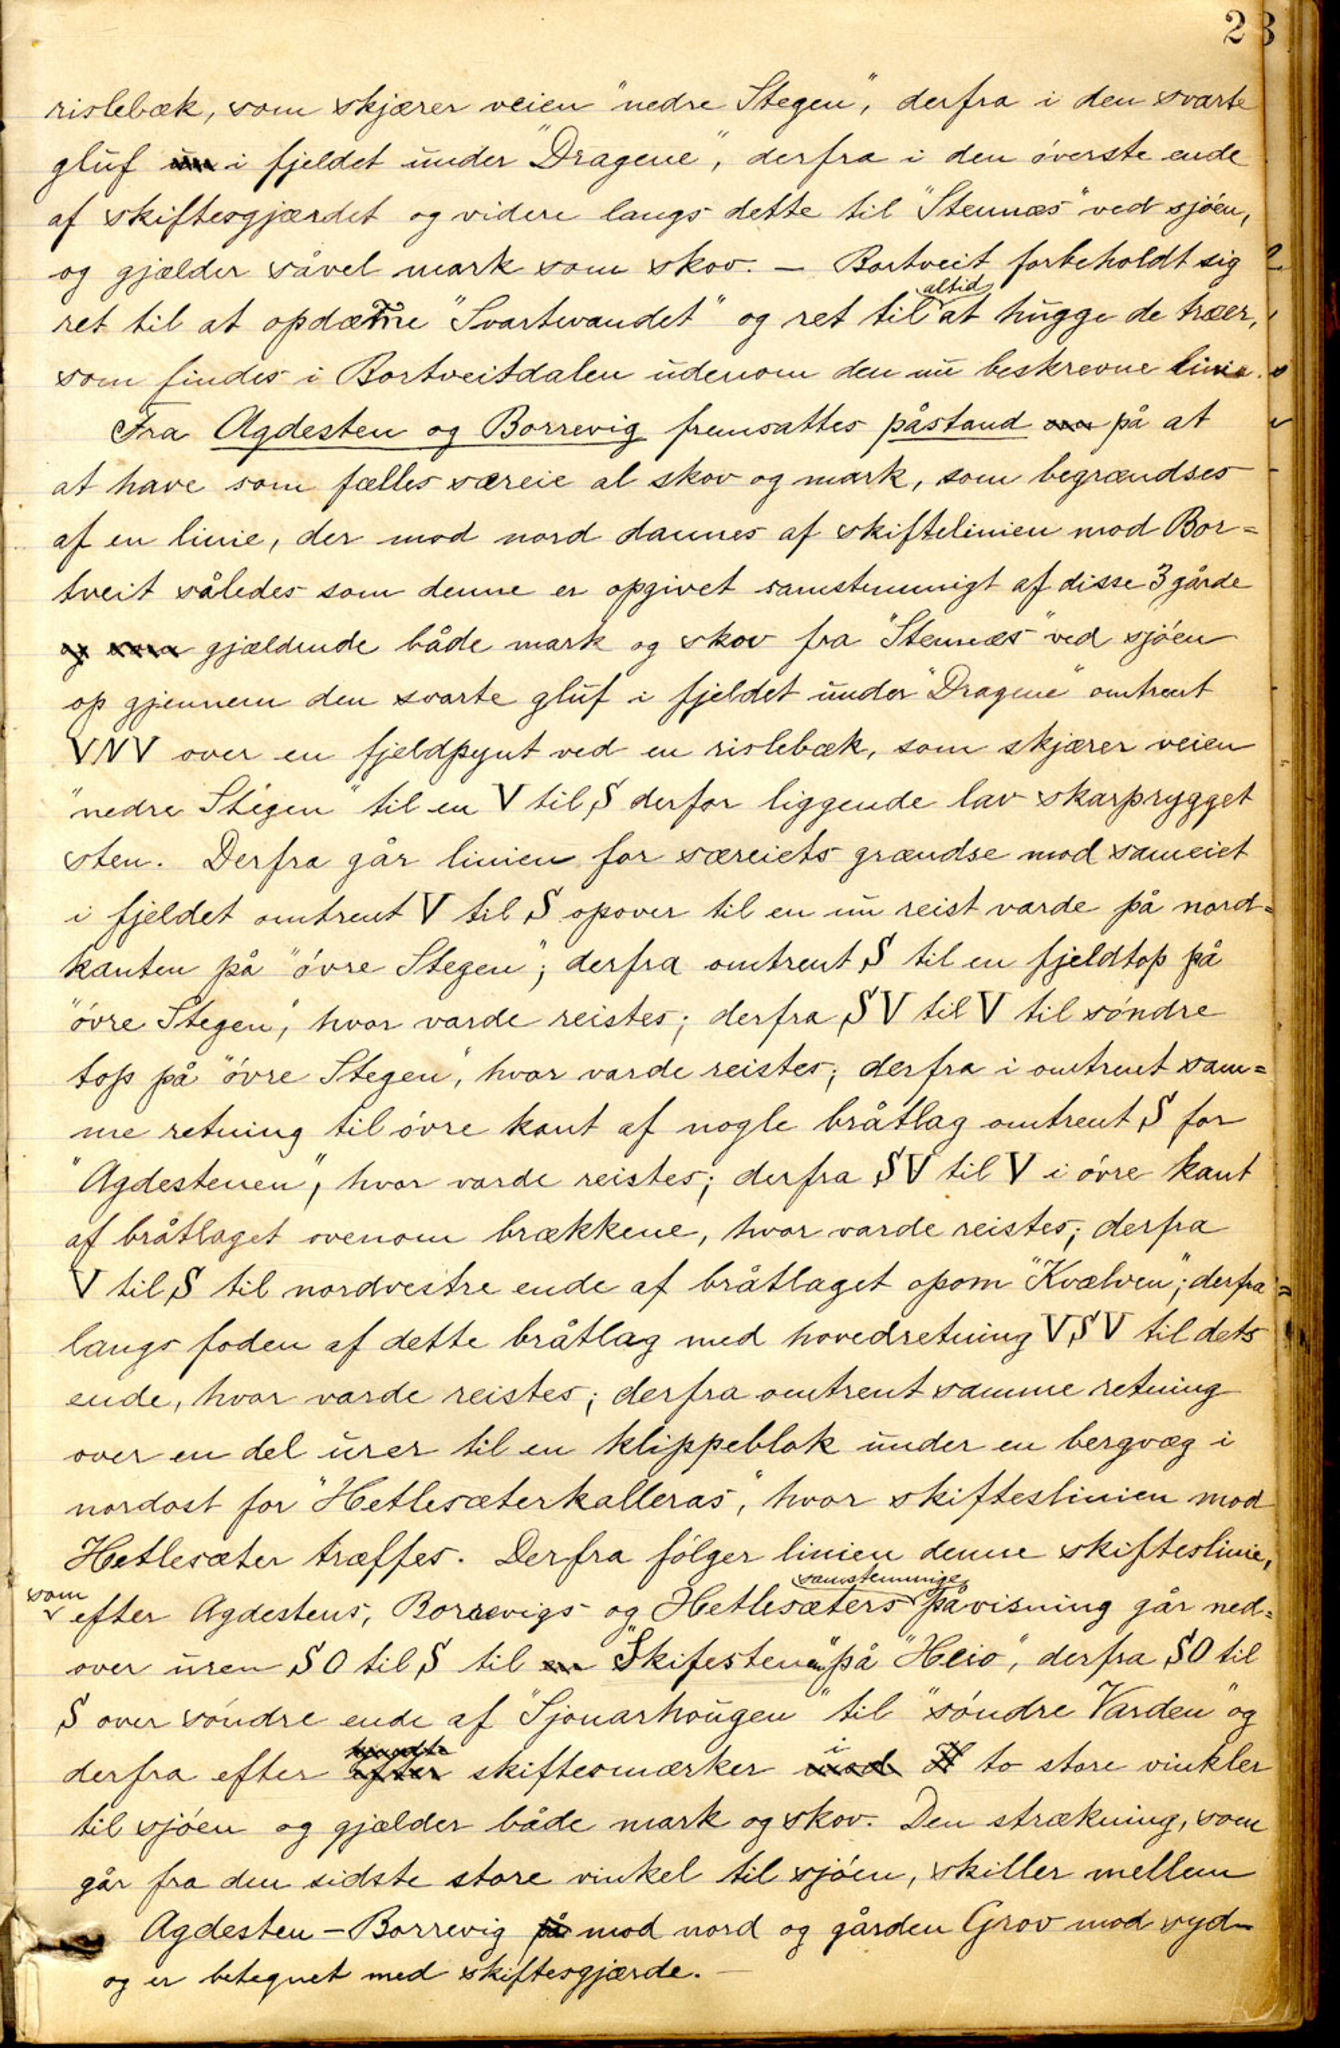 23
rislebæk, som skjærer veien "nedre Stegen", derfra i den svarte
gluf i fjeldet under "Dragene", derfra i den óverste ende
af skiftesgjærdet og videre langs dette til "Stennæs" ved sjóen,
og gjælder såvel mark som skov. — Bortveit forbeholdt sig
ret til at opdæmme "Svartevandet" og ret til altid at hugge de træer,
som findes i Bortveitdalen udenom den nu beskrevne linie.
Fra Agdesten og Borrevig fremsattes påstand på at
at have som fælles særeie al skov og mark, som begrændses
af en linie, der mod nord dannes af skiftelinien mod Bor=
tveit således som denne er opgivet samstemmigt af disse 3 gårde
gjældende både mark og skov fra "Stennæs" ved sjóen
op gjennem den svarte gluf i fjeldet under "Dragene" omtrent
VNV over en fjeldpynt ved en rislebæk, som skjærer veien
"nedre Stegen" til en V til S derfor liggende lav skarprygget
sten. Derfra går linien for særeiets grændse mod sameiet
i fjeldet omtrent V til S opover til en nu reist varde på nord=
kanten på "óvre Stegen"; derfra omtrent S til en fjeldtop på
"óvre Stegen", hvor varde reistes; derfra SV til V til sóndre
top på "óvre Stegen", hvor varde reistes; derfra i omtrent sam=
me retning til óvre kant af nogle bråtlag omtrent S for
"Agdestenen", hvor varde reistes; derfra SV til V i óvre kant
af bråtlaget ovenom brækkene, hvor varde reistes; derfra
V til S til nordvestre ende af bråtlaget opom "Kvælven"; derfra
langs foden af dette bråtlag med hovedretning VSV til dets
ende, hvor varde reistes; derfra omtrent samme retning
over en del urer til en klippeblok under en bergvæg i
nordost for "Hetlesæterkalleras", hvor skifteslinien mod
Hetlesæter træffes. Derfra fólger linien denne skifteslinie,
som efter Agdestens, Borrevigs og Hetlesæters samstemmige påvisning går ned=
over uren SO til S til "Skifestenen" på "Heio", derfra SO til
S over sóndre ende af "Sjonarhougen" til "sóndre Varden" og
derfra efter skiftesmærker i to store vinkler
til sjóen og gjælder både mark og skov. Den strækning, som
går fra den sidste store vinkel til sjóen, skiller mellem
Agdesten — Borrevig mod nord og gården Grov mod syd
og er betegnet med skiftesgjærde. —